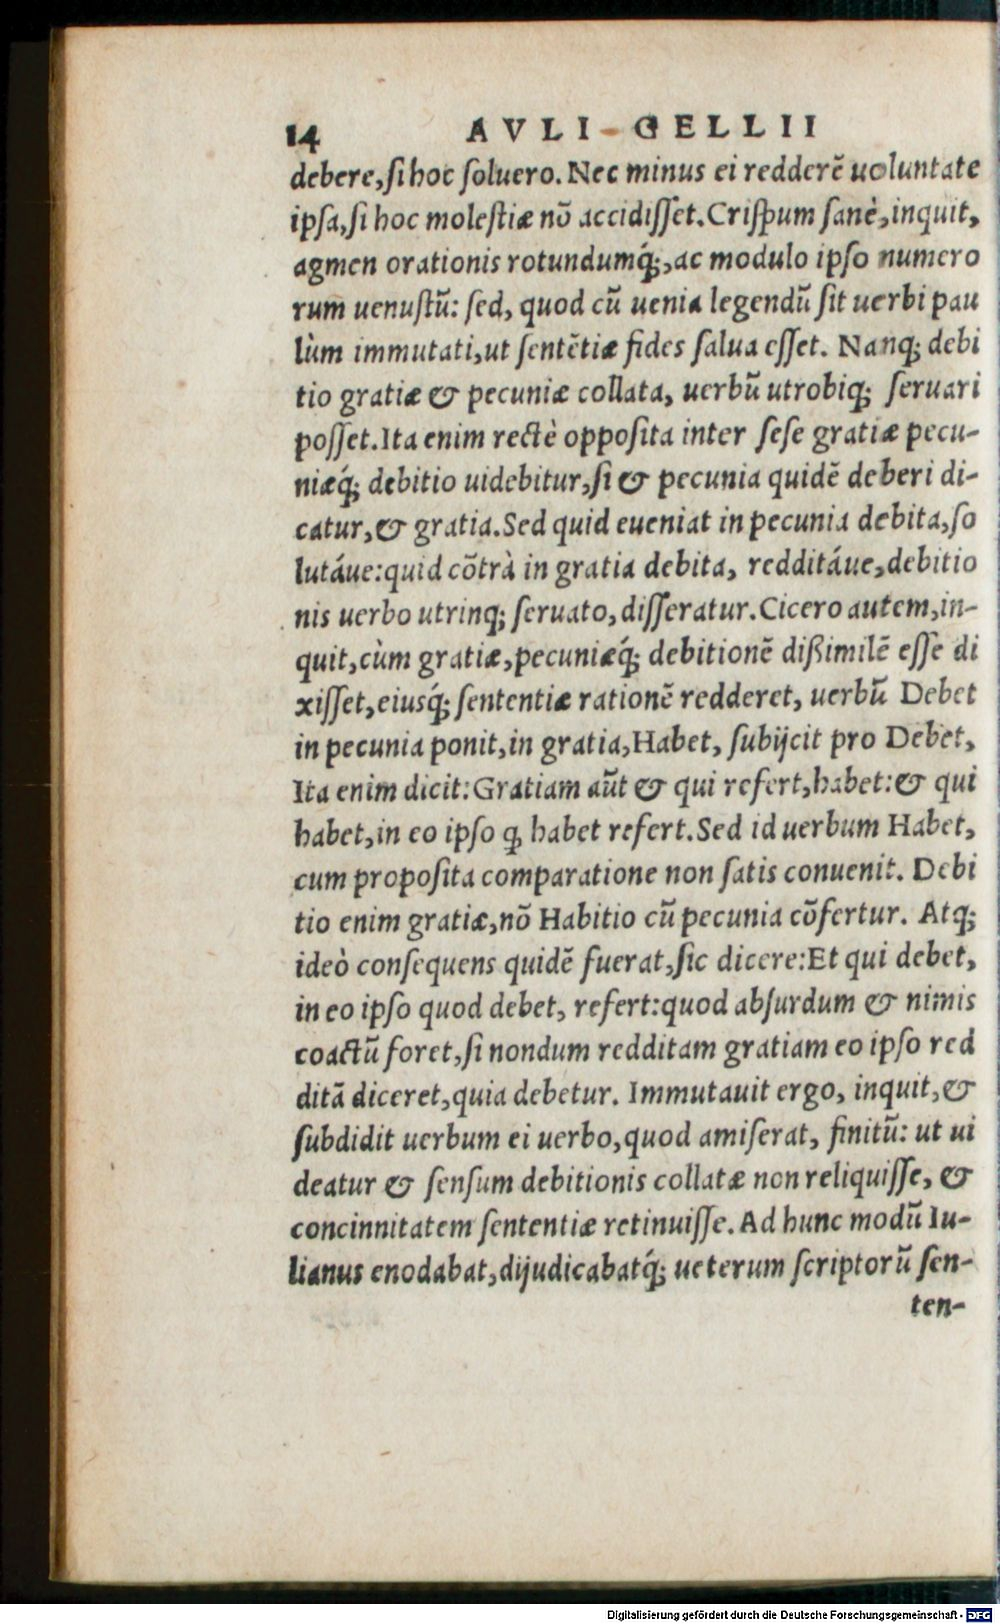 14 AVLI GELLII
debere,si hoc soluero. Nec minus ei redderẽ uoluntate
ipsa,si hoc molestiæ nõ accidisset. Crispum sanè,inquit,
agmen orationis rotundumq́;,ac modulo ipso numero
rum uenustũ: sed, quod cũ uenia legendũ sit uerbi pau
lùm immutati,ut sentẽtiæ fides salua esset. Nanq; debi
tio gratiæ & pecuniæ collata, uerbũ utrobiq; seruari
posset. Ita enim rectè opposita inter sese gratiæ pecu-
niæq́; debitio uidebitur,si & pecunia quidẽ deberi di-
catur,& gratia. Sed quid eueniat in pecunia debita,so
lutáue: quid cõtrà in gratia debita, redditáue,debitio
nis uerbo utrinq; seruato,disseratur. Cicero autem,in-
quit,cùm gratiæ,pecuniæq́; debitionẽ dißimilẽ esse di
xisset,eiusq́; sententiæ rationẽ redderet, uerbũ Debet
in pecunia ponit,in gratia,Habet, subijcit pro Debet,
Ita enim dicit: Gratiam aũt & qui refert,habet: & qui
habet,in eo ipso ꝙ habet refert. Sed id uerbum Habet,
cum proposita comparatione non satis conuenit. Debi
tio enim gratiæ,nõ Habitio cũ pecunia cõfertur. Atq;
ideò consequens quidẽ fuerat,sic dicere: Et qui debet,
in eo ipso quod debet, refert: quod absurdum & nimis
coactũ foret,si nondum redditam gratiam eo ipso red
ditã diceret,quia debetur. Immutauit ergo, inquit,&
subdidit uerbum ei uerbo,quod amiserat, finitũ: ut ui
deatur & sensum debitionis collatæ non reliquisse, &
concinnitatem sententiæ retinuisse. Ad hunc modũ Iu-
lianus enodabat,dijudicabatq́; ueterum scriptorũ sen-
ten-
Digitalisierung gefördert durch die Deutsche Forschungsgemeinschaft - DFG